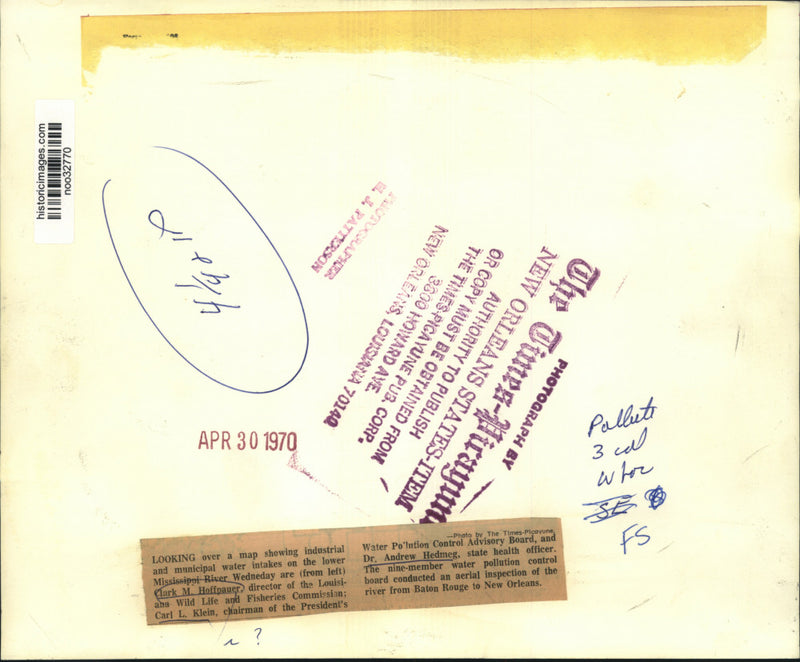 historicimages.com
noo32770
PHOTOGRAPHER
H. J. PATTERSON
PHOTOGRAPH BY
The Times-Picayune
NEW ORLEANS STATES-ITEM
AUTHORITY TO PUBLISH
OR COPY MUST BE OBTAINED FROM
THE TIMES-PICAYUNE PUB. CORP.
3800 HOWARD AVE.
NEW ORLEANS, LOUISIANA 70140
APR 30 1970
3 col
FS
LOOKING over a map showing industrial
and municipal water intakes on the lower
Mississippi River Wedneday are (from left)
Clark M. Hoffpauer, director of the Louisi-
ana Wild Life and Fisheries Commission;
Carl L. Klein, chairman of the President's
—Photo by The Times-Picayune.
Water Pollution Control Advisory Board, and
Dr. Andrew Hedmeg, state health officer.
The nine-member water pollution control
board conducted an aerial inspection of the
river from Baton Rouge to New Orleans.
?